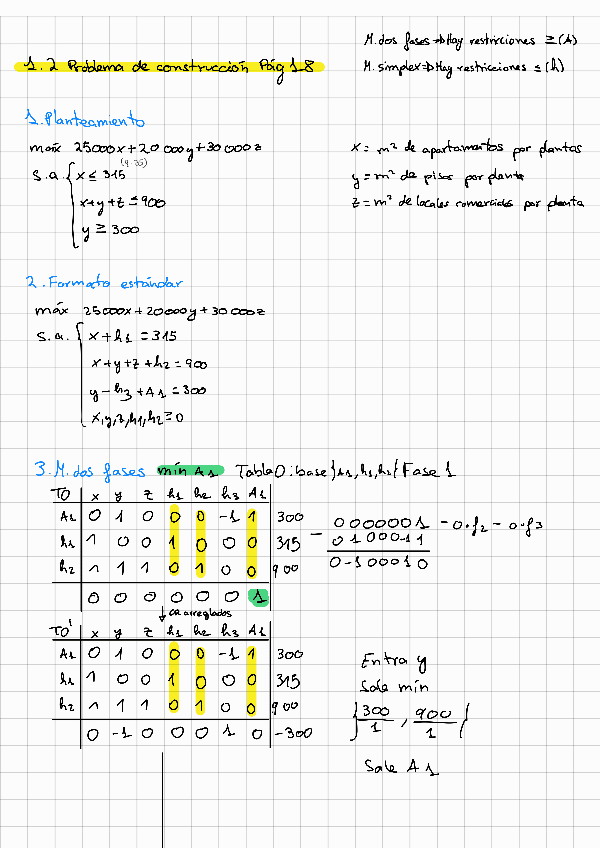 M. dos fases => Hay restricciones ≥ (A)
1.2 Problema de construcción Pág 18
M. simplex => Hay restricciones ≤ (h)
1. Planteamiento
máx 25000x + 20000y + 30000z
x = m² de apartamentos por plantas
s.a. { x ≤ 315
y = m² de pisos por planta
x + y + z ≤ 900
z = m² de locales comerciales por planta
y ≥ 300
2. Formato estándar
máx 25000x + 20000y + 30000z
s.a. { x + h1 = 315
x + y + z + h2 = 900
y - h3 + A1 = 300
x, y, z, h1, h2 ≥ 0
3. M. dos fases mín A1 Tabla 0: base {A1, h1, h2} Fase 1
T0 x y z h1 h2 h3 A1
A1 0 1 0 0 0 -1 1 300
h1 1 0 0 1 0 0 0 315
h2 1 1 1 0 1 0 0 900
0 0 0 0 0 0 1
- 0000001 - 0·f2 - 0·f3
01000-11
0-100010
↓ CR arreglados
T0' x y z h1 h2 h3 A1
A1 0 1 0 0 0 -1 1 300
h1 1 0 0 1 0 0 0 315
h2 1 1 1 0 1 0 0 900
0 -1 0 0 0 1 0 -300
Entra y
Sale mín
{300/1, 900/1}
Sale A1